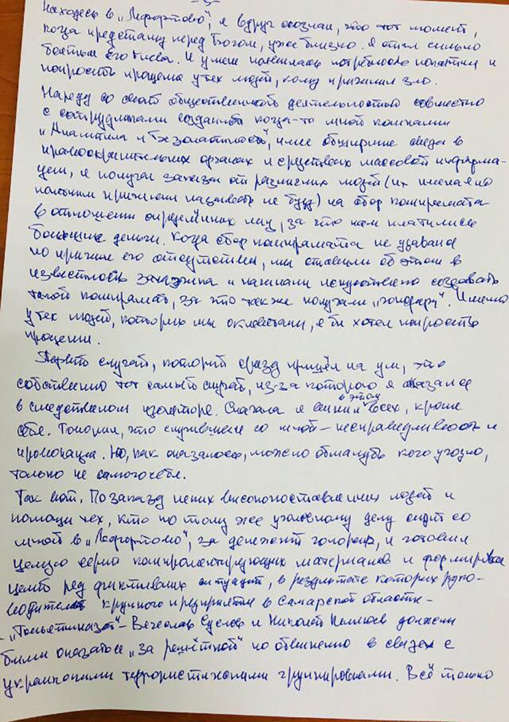 Находясь в „Лефортово", я вдруг осознал, что тот момент,
когда предстану перед Богом, уже близко. Я стал сильно
бояться Его гнева. И у меня появилась потребность покаяться и
попросить прощения у тех людей, кому причинил зло.
Наряду со своей общественной деятельностью совместно
с сотрудниками созданной когда-то мной компании
„Аналитика и безопасность", имея обширные связи в
правоохранительных органах и средствах массовой информа-
ции, я получал заказы от различных людей (их имена я по
понятным причинам называть не буду) на сбор компромата
в отношении определённых лиц, за что нам платились
большие деньги. Когда сбор компромата не удавался
по причине его отсутствия, мы ставили об этом в
известность заказчика и начинали искусственно создавать
такой компромат, за что также получали „гонорар". Именно
у тех людей, которых мы оклеветали, я бы хотел попросить
прощения.
случай, который сразу пришёл на ум, это
собственно тот самый случай, из-за которого я оказался
в следственном изоляторе. Сначала я винил в этом всех, кроме
себя. Говорил, что случившееся со мной – несправедливость и
провокация. Но, как оказалось, можно обмануть кого угодно,
только не самого себя.
Так вот. По заказу неких высокопоставленных людей и
помощи тех, кто по тому же уголовному делу сидит со
мной в „Лефортово", за денежный гонорар, я готовил
целую серию компрометирующих материалов и формировал
ряд фиктивных ситуаций, в результате которых руко-
водители крупного предприятия в Самарской области –
„Тольяттиазот" – Вячеслав Суслов и должны
были оказаться „за решёткой" по обвинению в связях с
украинскими террористическими группировками. Всё только